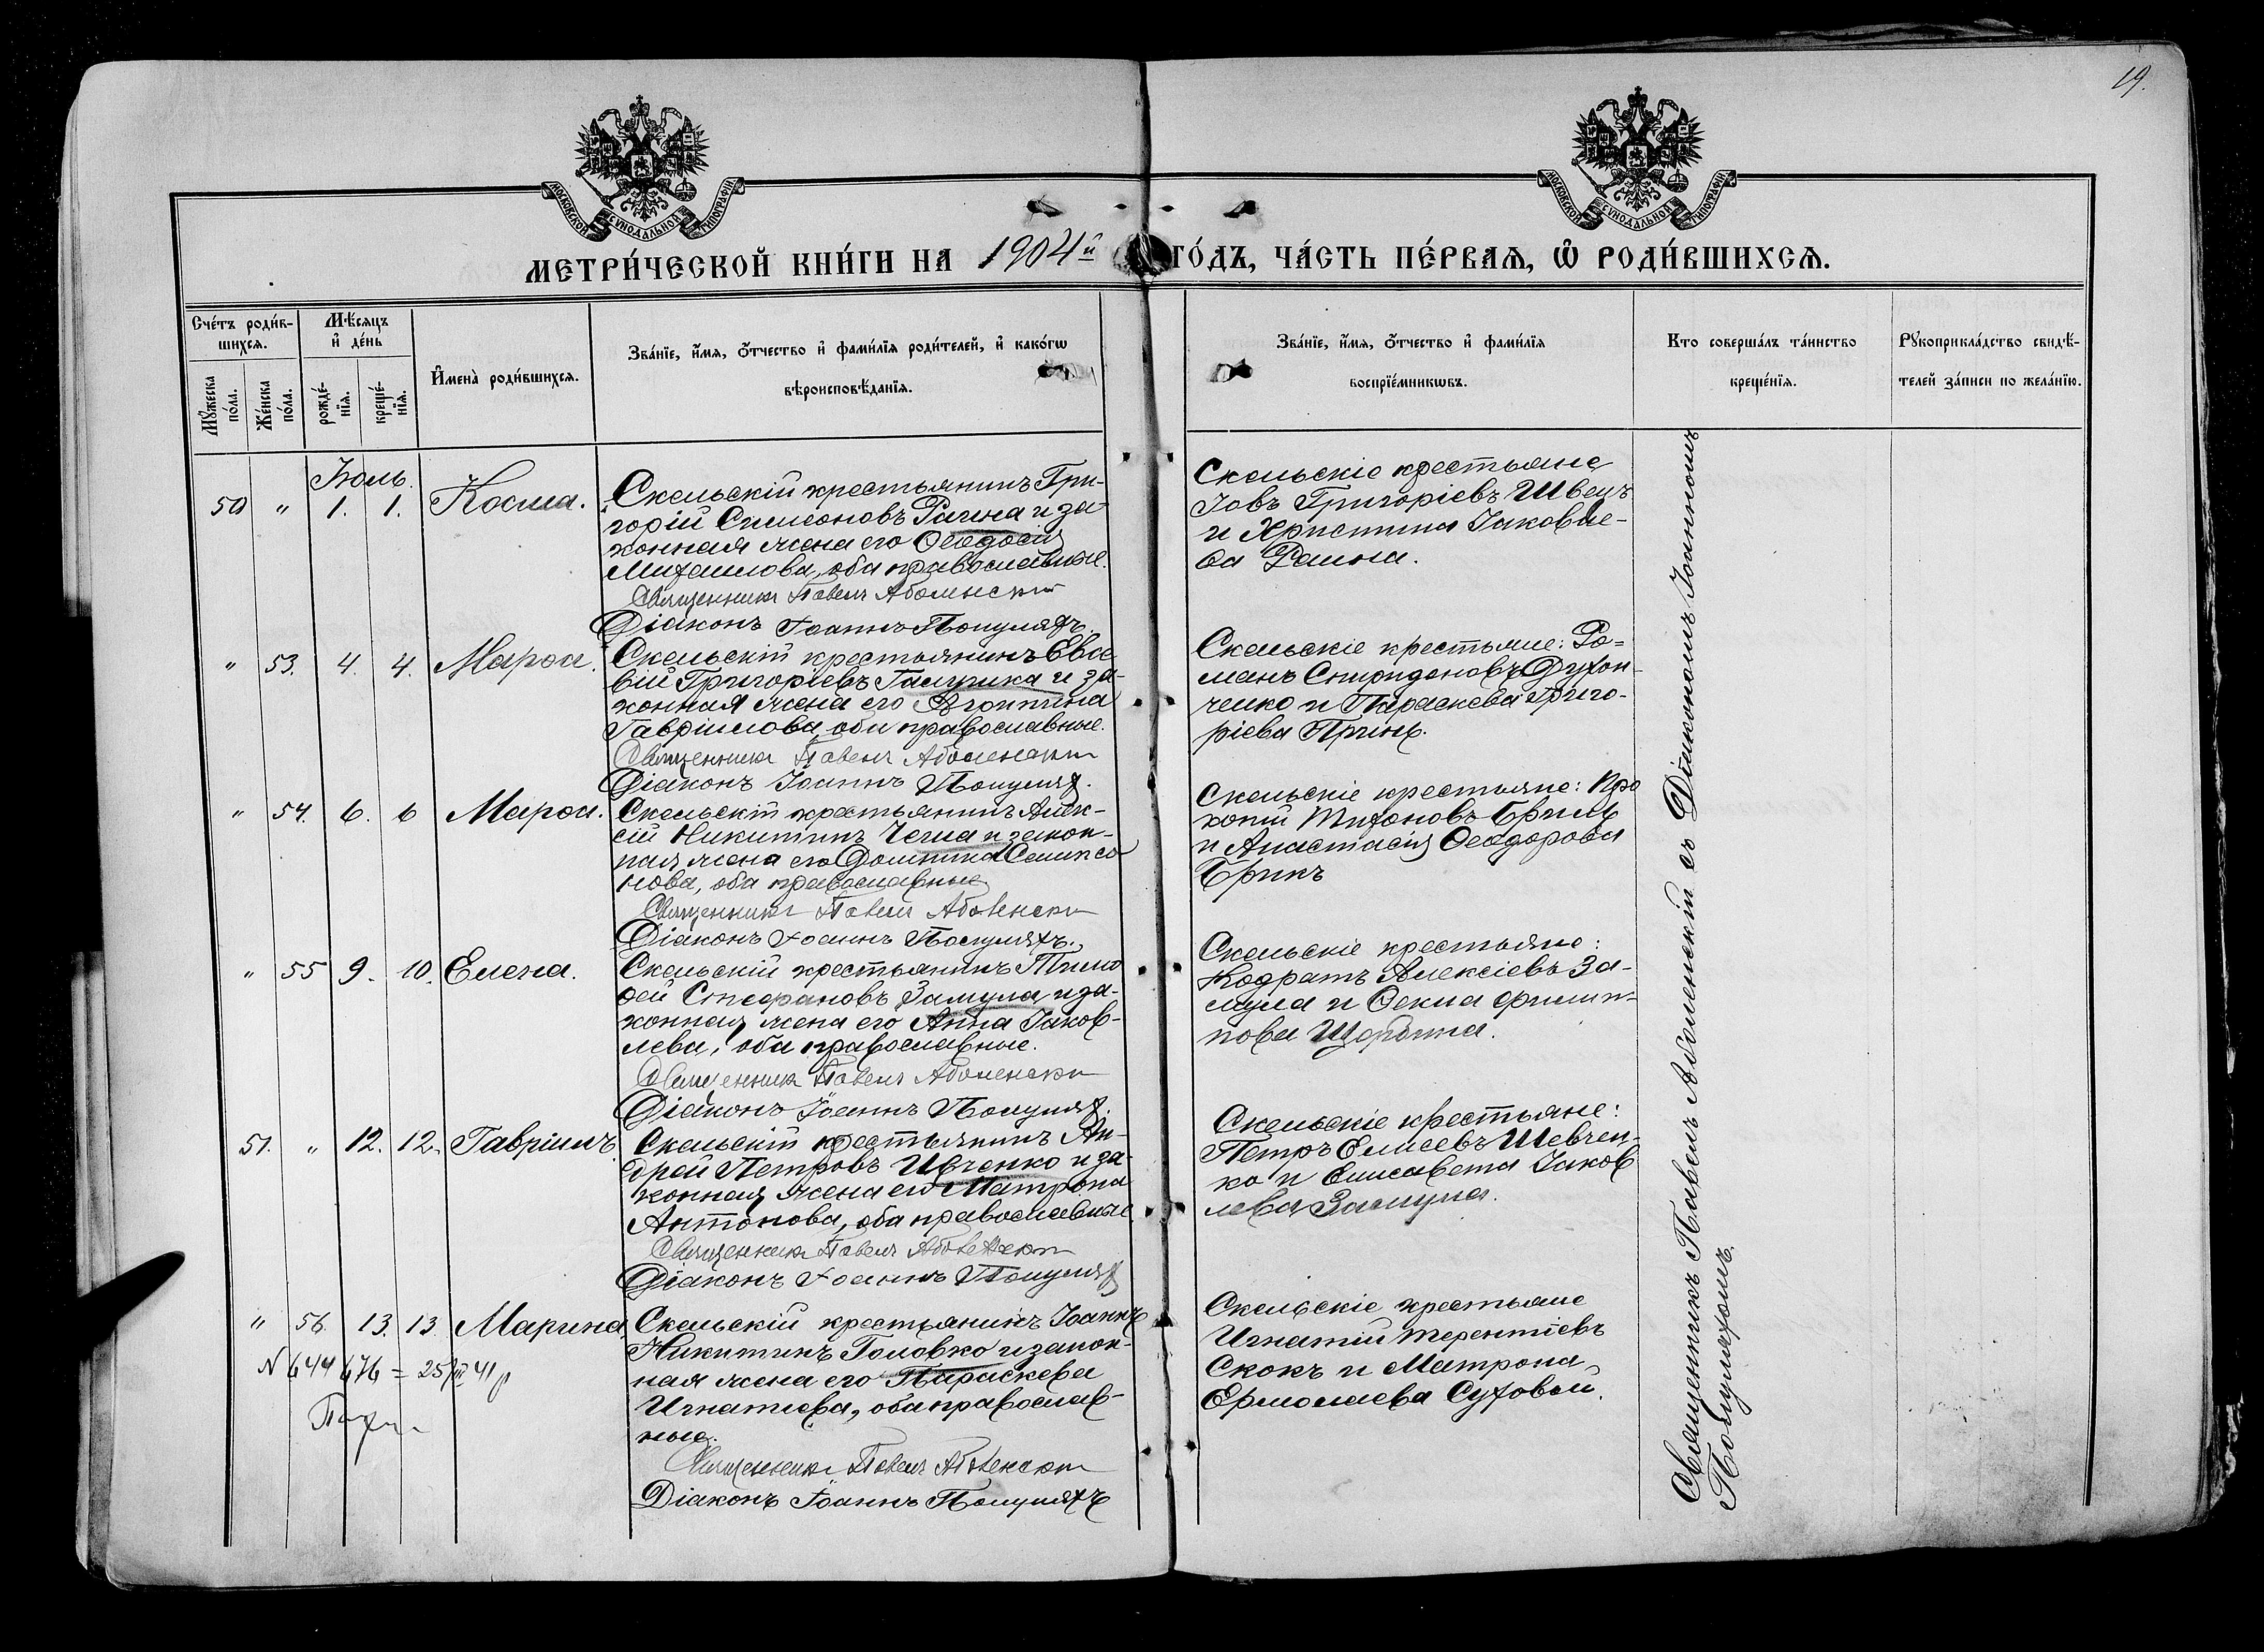 19.
МОСКОВСКОЙ СѴНОДАЛЬНОЙ ТИПОГРАФІИ
МОСКОВСКОЙ СѴНОДАЛЬНОЙ ТИПОГРАФІИ
МЕТРИ́ЧЕСКОЙ КНИ́ГИ НА 1904й ГО́ДЪ, ЧА́СТЬ ПЕ́РВАѦ, Ѽ РОДИ́ВШИХСѦ.
Сче́тъ роди́в-
шихсѧ.
Мꙋ́жеска
по́ла.
Же́нска
по́ла.
Мѣ́сяцъ
и҆ де́нь
рожде́-
нїѧ.
креще́-
нїѧ.
И҆мена̀ роди́вшихсѧ.
Зва́нїе, и҆́мѧ, ѻ҆́тчество и҆ фами́лїѧ роди́телей, и҆ како́гѡ
вѣроисповѣ́данїѧ.
Зва́нїе, и҆́мѧ, ѻ҆́тчество и҆ фами́лїѧ
воспрїе́мникѡвъ.
Кто соверша́лъ та́инство
креще́нїѧ.
Рꙋкоприкла́дство свидѣ́-
телей за́писи по жела́нїю.
Іюль.
50 " 1. 1. Косма.
Скельскій крестьянинъ Гри-
горій Симеоновъ Рагина и за-
конная жена его Ѳеодосія
Михаилова, оба православные.
Священникъ Павелъ Аболенскій
Діаконъ Іоаннъ Полуляхъ.
Скельскіе крестьяне
Іовъ Григоріевъ Швецъ
и Христина Іаковле-
ва
" 53. 4. 4. Марѳа.
Скельскій крестьянинъ Евсе
вій Григоріевъ Галушка и за-
конная жена его Агрипина
Гавріилова, оба православные.
Священникъ Павелъ Аболенскій
Діаконъ Іоаннъ Полулях.
Скельскіе крестьяне: Ро-
манъ Спиридоновъ Духон-
ченко и Параскева Григо-
ріева
" 54. 6. 6 Марѳа.
Скельскій крестьянинъ Алек-
сій Никитинъ и закон-
ная жена его Домникія Симео
нова, оба православные
Священникъ Павелъ Аболенскій
Діаконъ Іоаннъ Полуляхъ.
Скельскіе крестьяне: Про
копій Тихоновъ
и Анастасія Ѳеодорова
Брикъ
" 55 9. 10. Елена.
Скельскій крестьянинъ Тимо
ѳей Стефановъ Замула и за-
конная жена его Анна Іаков-
лева, оба православные.
Священникъ Павелъ Аболенскій
Діаконъ Іоаннъ Полулях.
Скельскіе крестьяне:
Кодратъ Алексіевъ За-
мула и Ѳекла Филип-
пова
51. " 12. 12. Гавріилъ
Скельскій крестьянинъ Ан-
дрей Петровъ Ивченко и за-
конная жена его Матрона
Антонова, оба православные
Священникъ Павелъ Аболенскій
Діаконъ Іоаннъ Полулях
Скельскіе крестьяне:
Петръ Елисеевъ Шевчен-
ко и Елисавета Іаков
лева Замула.
" 56. 13. 13. Марина
N 644676 = 25/III 41 р
Скельскій крестьянинъ Іоаннъ
Никитинъ Головко и закон-
ная жена его Параскева
Игнатіева, оба православ-
ные.
Священникъ Павелъ Аболенскій
Діаконъ Іоаннъ Полуляхъ
Скельскіе крестьяне
Игнатій Терентіевъ
Скокъ и Матрона
Ермолаева Суховей.
Священникъ Павелъ Аболенскій съ Діакономъ Іоанномъ
Полуляхомъ.